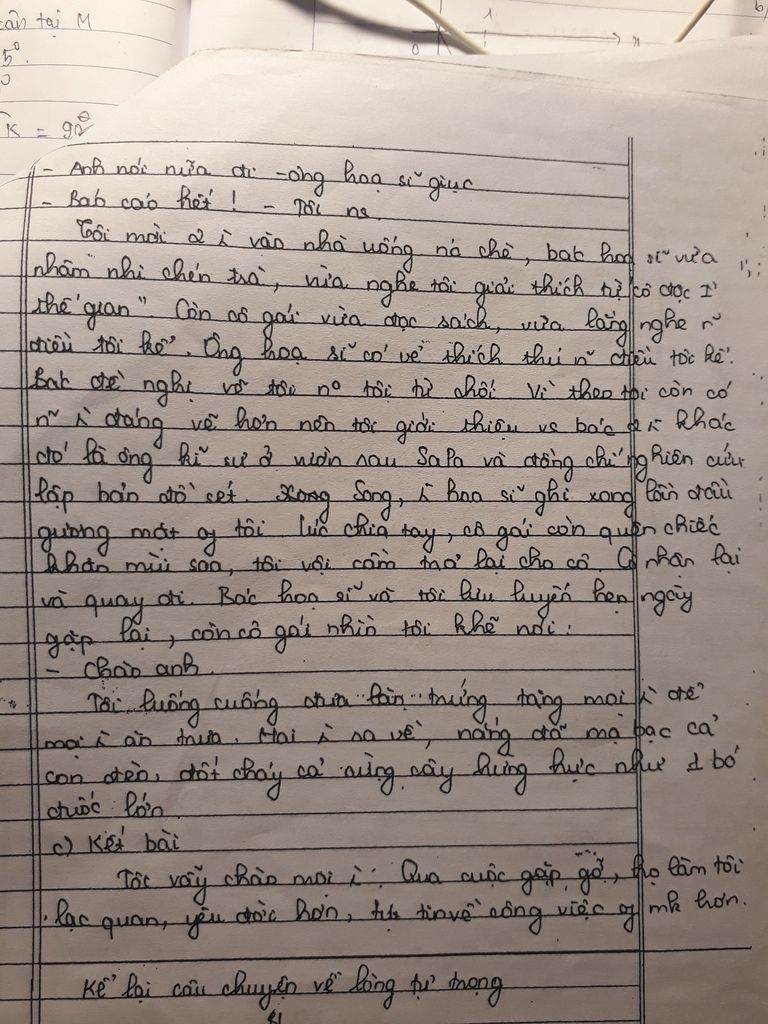 cân tại M
5°
K = 92°
- Anh nói nữa đi - ông hoạ sĩ giục
- Báo cáo hết ! - Tôi ns
Tôi mời 2 ì vào nhà uống nc chè, bác hoạ sĩ vừa
nhâm nhi chén trà, vừa nghe tôi giải thích từ "cô độc I'
thế gian". Còn cô gái vừa đọc sách, vừa lắng nghe n~
điều tôi kể. Ông hoạ sĩ có vẻ thích thú n~ điều tôi kể.
Bác đề nghị vẽ tôi no tôi từ chối. Vì theo tôi còn có
n~ ì đáng vẽ hơn nên tôi giới thiệu vs bác 2 ì khác
đó là ông kĩ sư ở vườn rau SaPa và đồng chí nghiên cứu
lập bản đồ sét. Xong, ì hoạ sĩ ghi xong lần đầu
gương mặt of tôi. Lúc chia tay, cô gái còn quên chiếc
khăn mùi soa, tôi vội cầm trả lại cho cô. Cô nhận lại
và quay đi. Bác hoạ sĩ và tôi lưu luyến hẹn ngày
gặp lại, còn cô gái nhìn tôi khẽ nói:
- Chào anh.
Tôi luống cuống đưa làn trứng tặng mọi ì để
mọi ì ăn trưa. Hai ì ra về, nắng đã mạ bạc cả
con đèo, đốt cháy cả rừng cây hừng hực như 1 bó
đuốc lớn.
c) Kết bài
Tôi vẫy chào mọi ì. Qua cuộc gặp gỡ, họ làm tôi
lạc quan, yêu đời hơn, tự tin về công việc of mk hơn.
Kể lại câu chuyện về lòng tự trọng